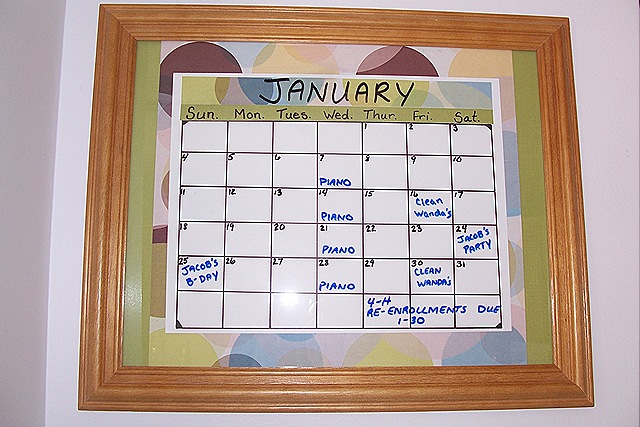 JANUARY
Sun. Mon. Tues. Wed. Thur. Fri. Sat.
1 2 3
4 5 6 7 8 9 10
PIANO
11 12 13 14 15 16 17
PIANO
Clean
Wanda's
18 19 20 21 22 23 24
PIANO
JACOB'S
PARTY
25 26 27 28 29 30 31
JACOB'S
B-DAY
PIANO
CLEAN
WANDA'S
4-H
RE-ENROLLMENTS DUE
1-30